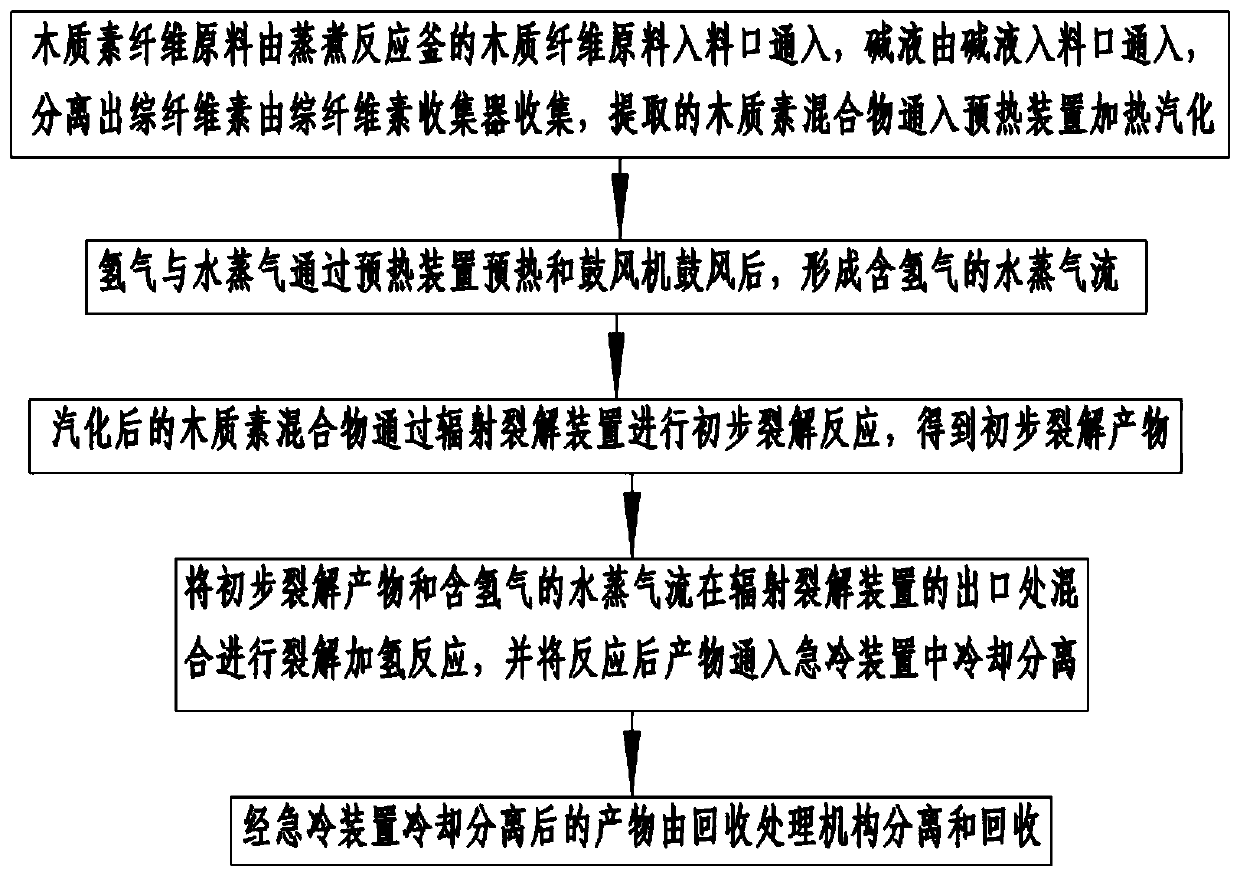 木质素纤维原料由蒸煮反应釜的木质纤维原料入料口通入，碱液由碱液入料口通入，
分离出综纤维素由综纤维素收集器收集，提取的木质素混合物通入预热装置加热汽化
氢气与水蒸气通过预热装置预热和鼓风机鼓风后，形成含氢气的水蒸气流
汽化后的木质素混合物通过辐射裂解装置进行初步裂解反应，得到初步裂解产物
将初步裂解产物和含氢气的水蒸气流在辐射裂解装置的出口处混
合进行裂解加氢反应，并将反应后产物通入急冷装置中冷却分离
经急冷装置冷却分离后的产物由回收处理机构分离和回收